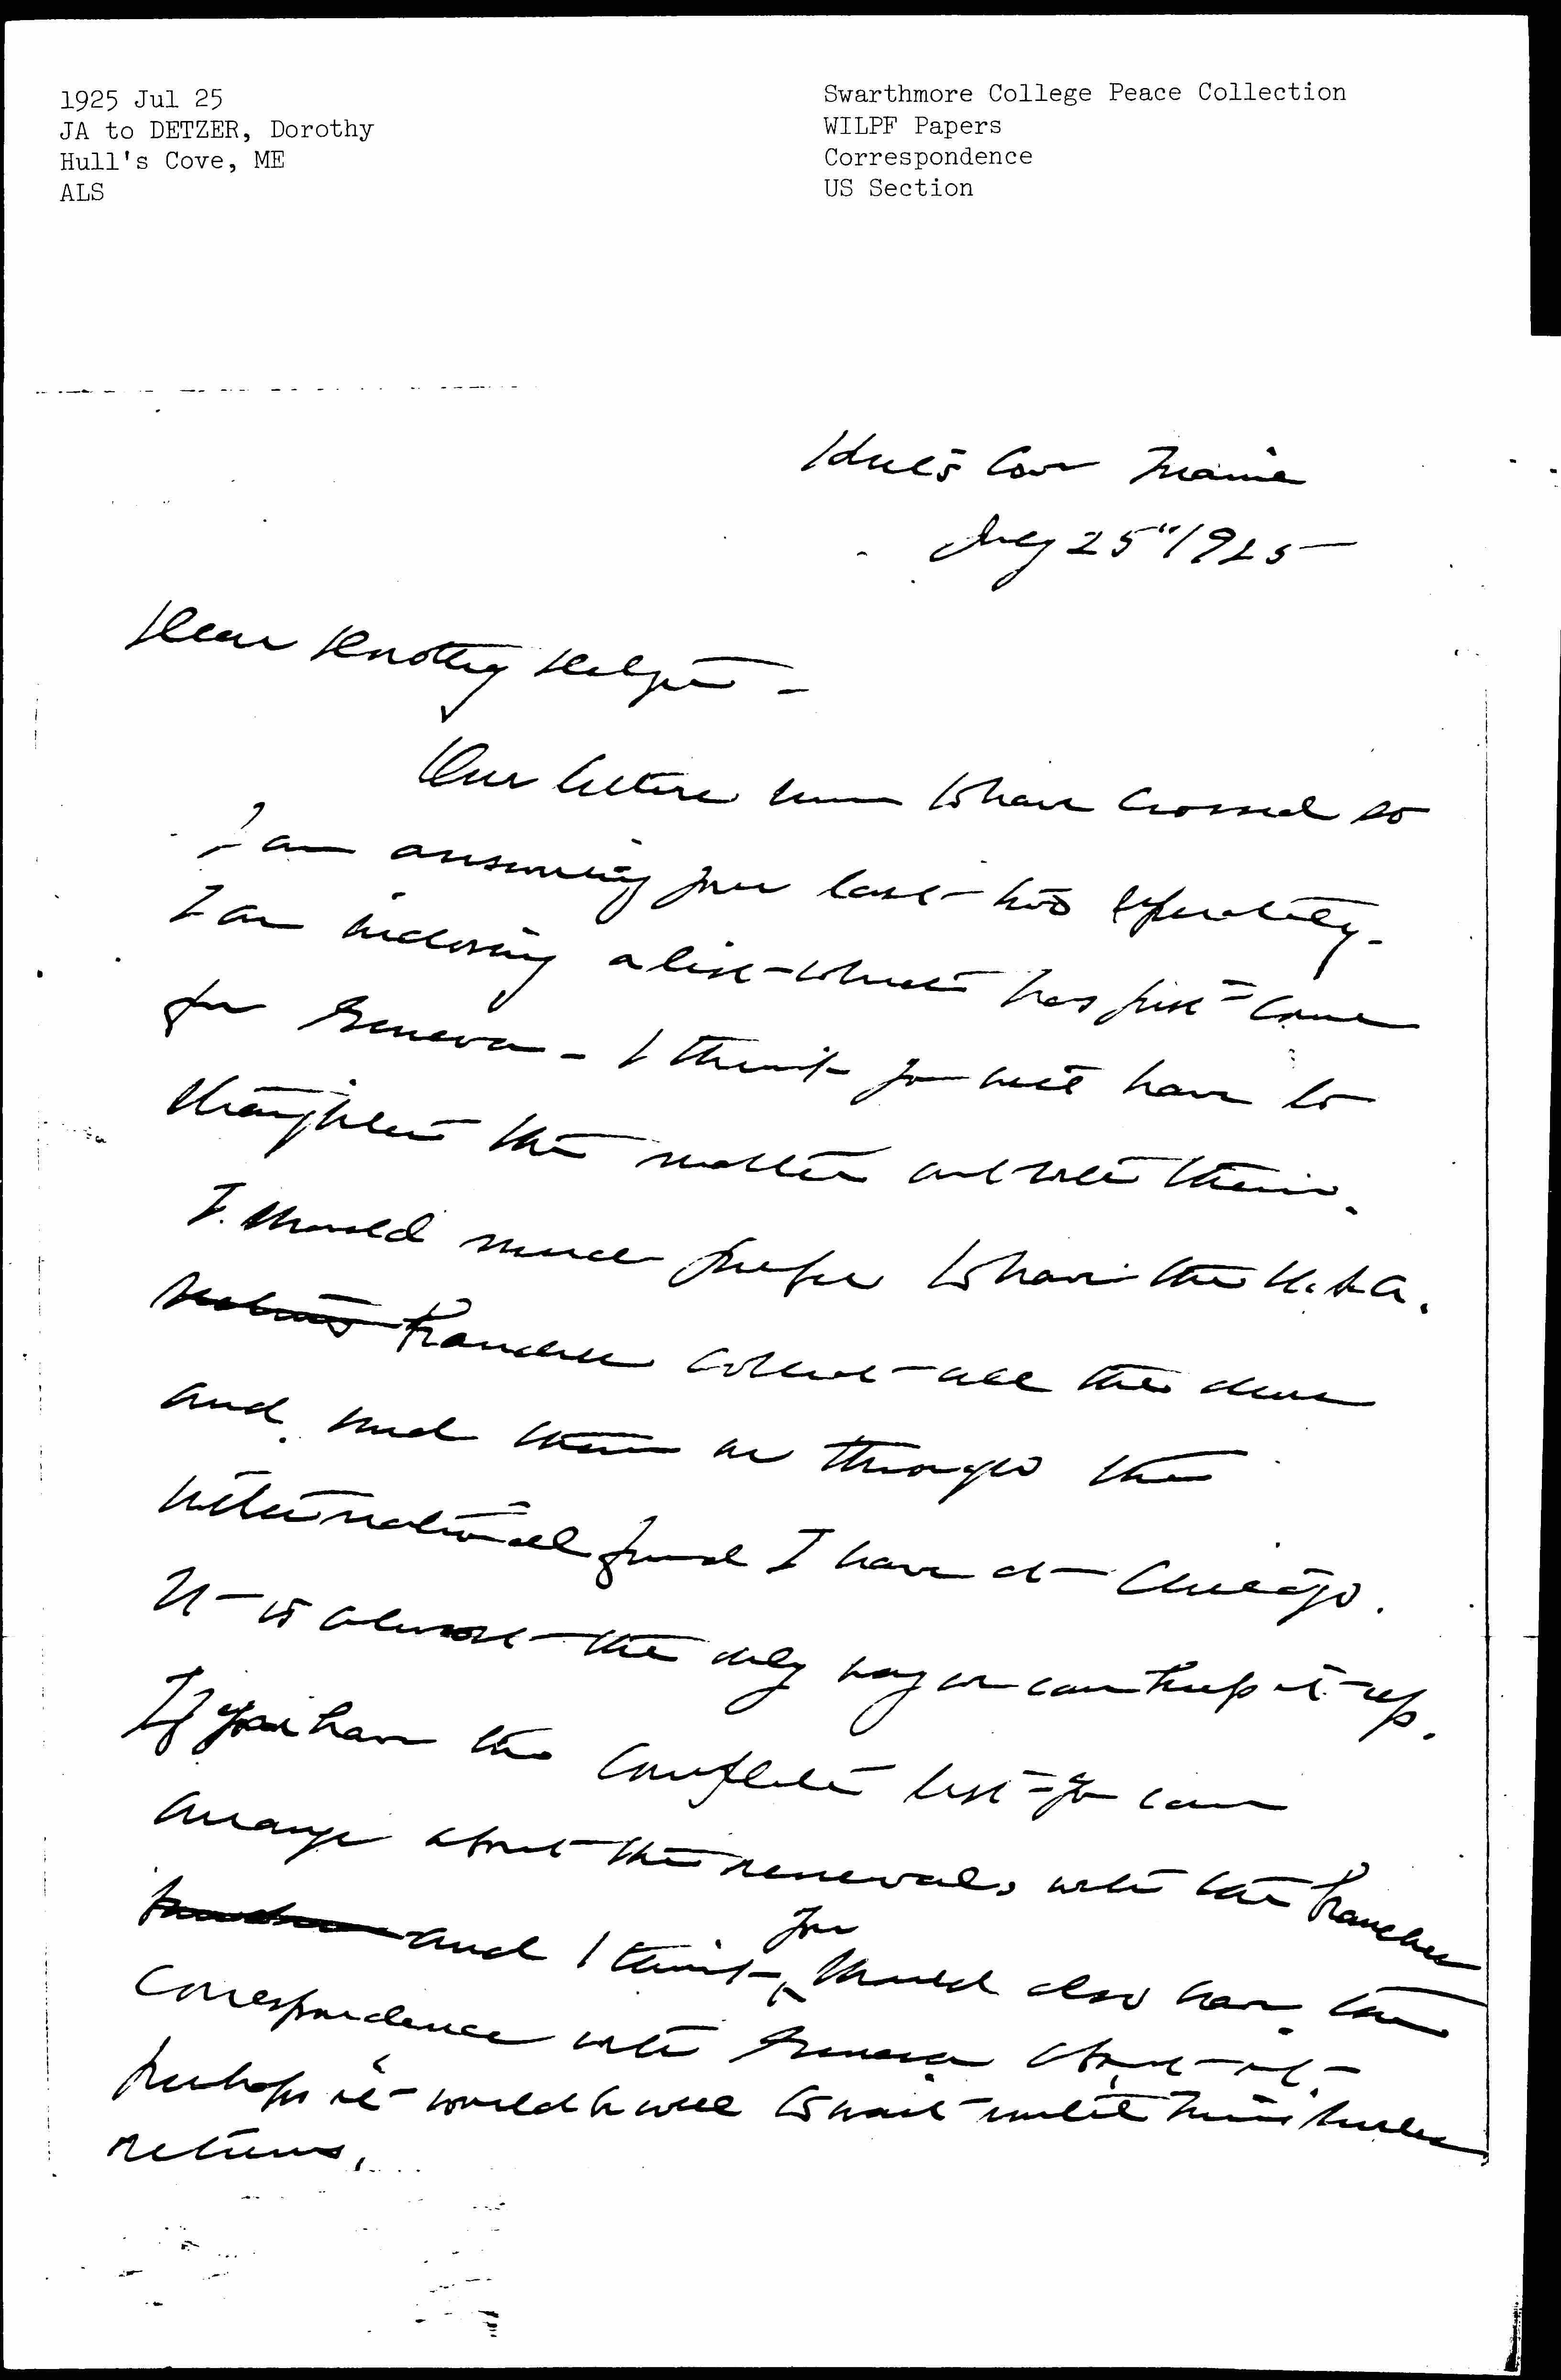 1925 Jul 25
JA to DETZER, Dorothy
Hull's Cove, ME
ALS
Swarthmore College Peace Collection
WILPF Papers
Correspondence
US Section
Hull's Cove Maine
July 25" 1925
Dear Dorothy Detzer -
Our letters seem to have crossed so
I am answering your last two separately.
I am inclosing a list which has just come
from Geneva - I think you will have to
straighten the matter out with them.
I should much prefer to have the U.S.A.
branches collect all the dues
and send them on through the
international fund I have at Chicago.
It is almost the only way we can keep it up.
If you have the complete list you can
arrange about the renewals with the branches
and I think you should also have the
correspondence with Geneva about it -
perhaps it would be well to wait until Miss
returns.